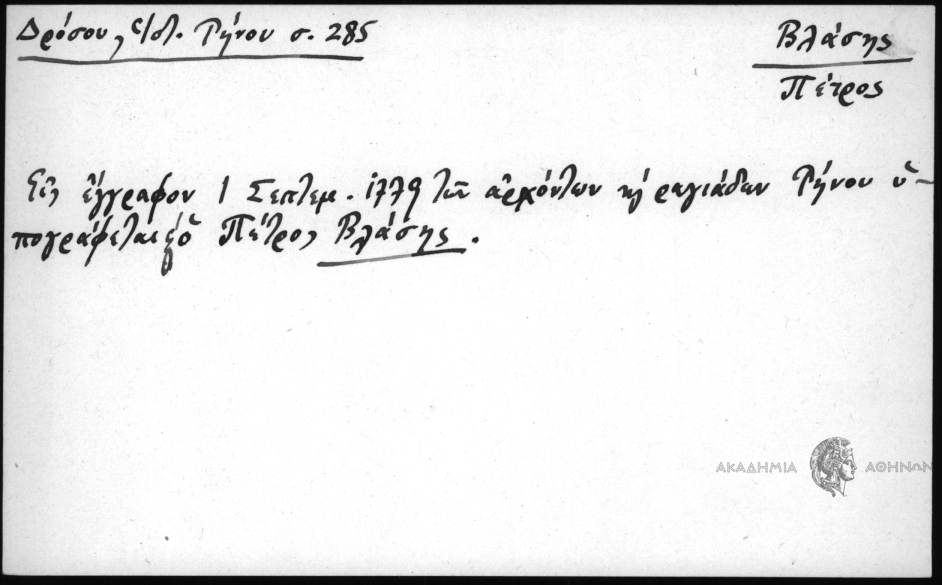 Δρόσου, Ἱστ. Τήνου σ. 285
Βλάσης
Πέτρος
Εἰς ἔγγραφον 1 Σεπτεμ. 1779 τῶν ἀρχόντων καὶ ραγιάδων Τήνου ὑ-
πογράφεται καὶ ὁ Πέτρος Βλάσης.
ΑΚΑΔΗΜΙΑ ΑΘΗΝΩΝ